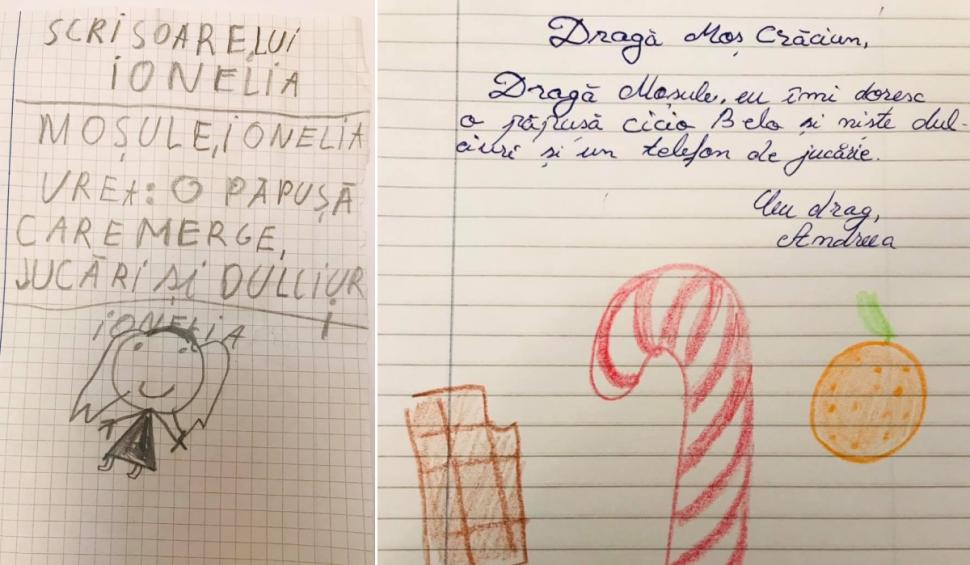 SCRISOARE,LUI
IONELIA
MOȘULE,IONELIA
VREA: O PĂPUȘĂ
CARE MERGE,
JUCĂRI ȘI DULCIUR
I
IONELIA
Dragă Moș Crăciun,
Dragă Moșule, eu îmi doresc
o păpusă cicio Bela și niste dul-
ciuri și un telefon de jucărie.
Cu drag,
Andreea